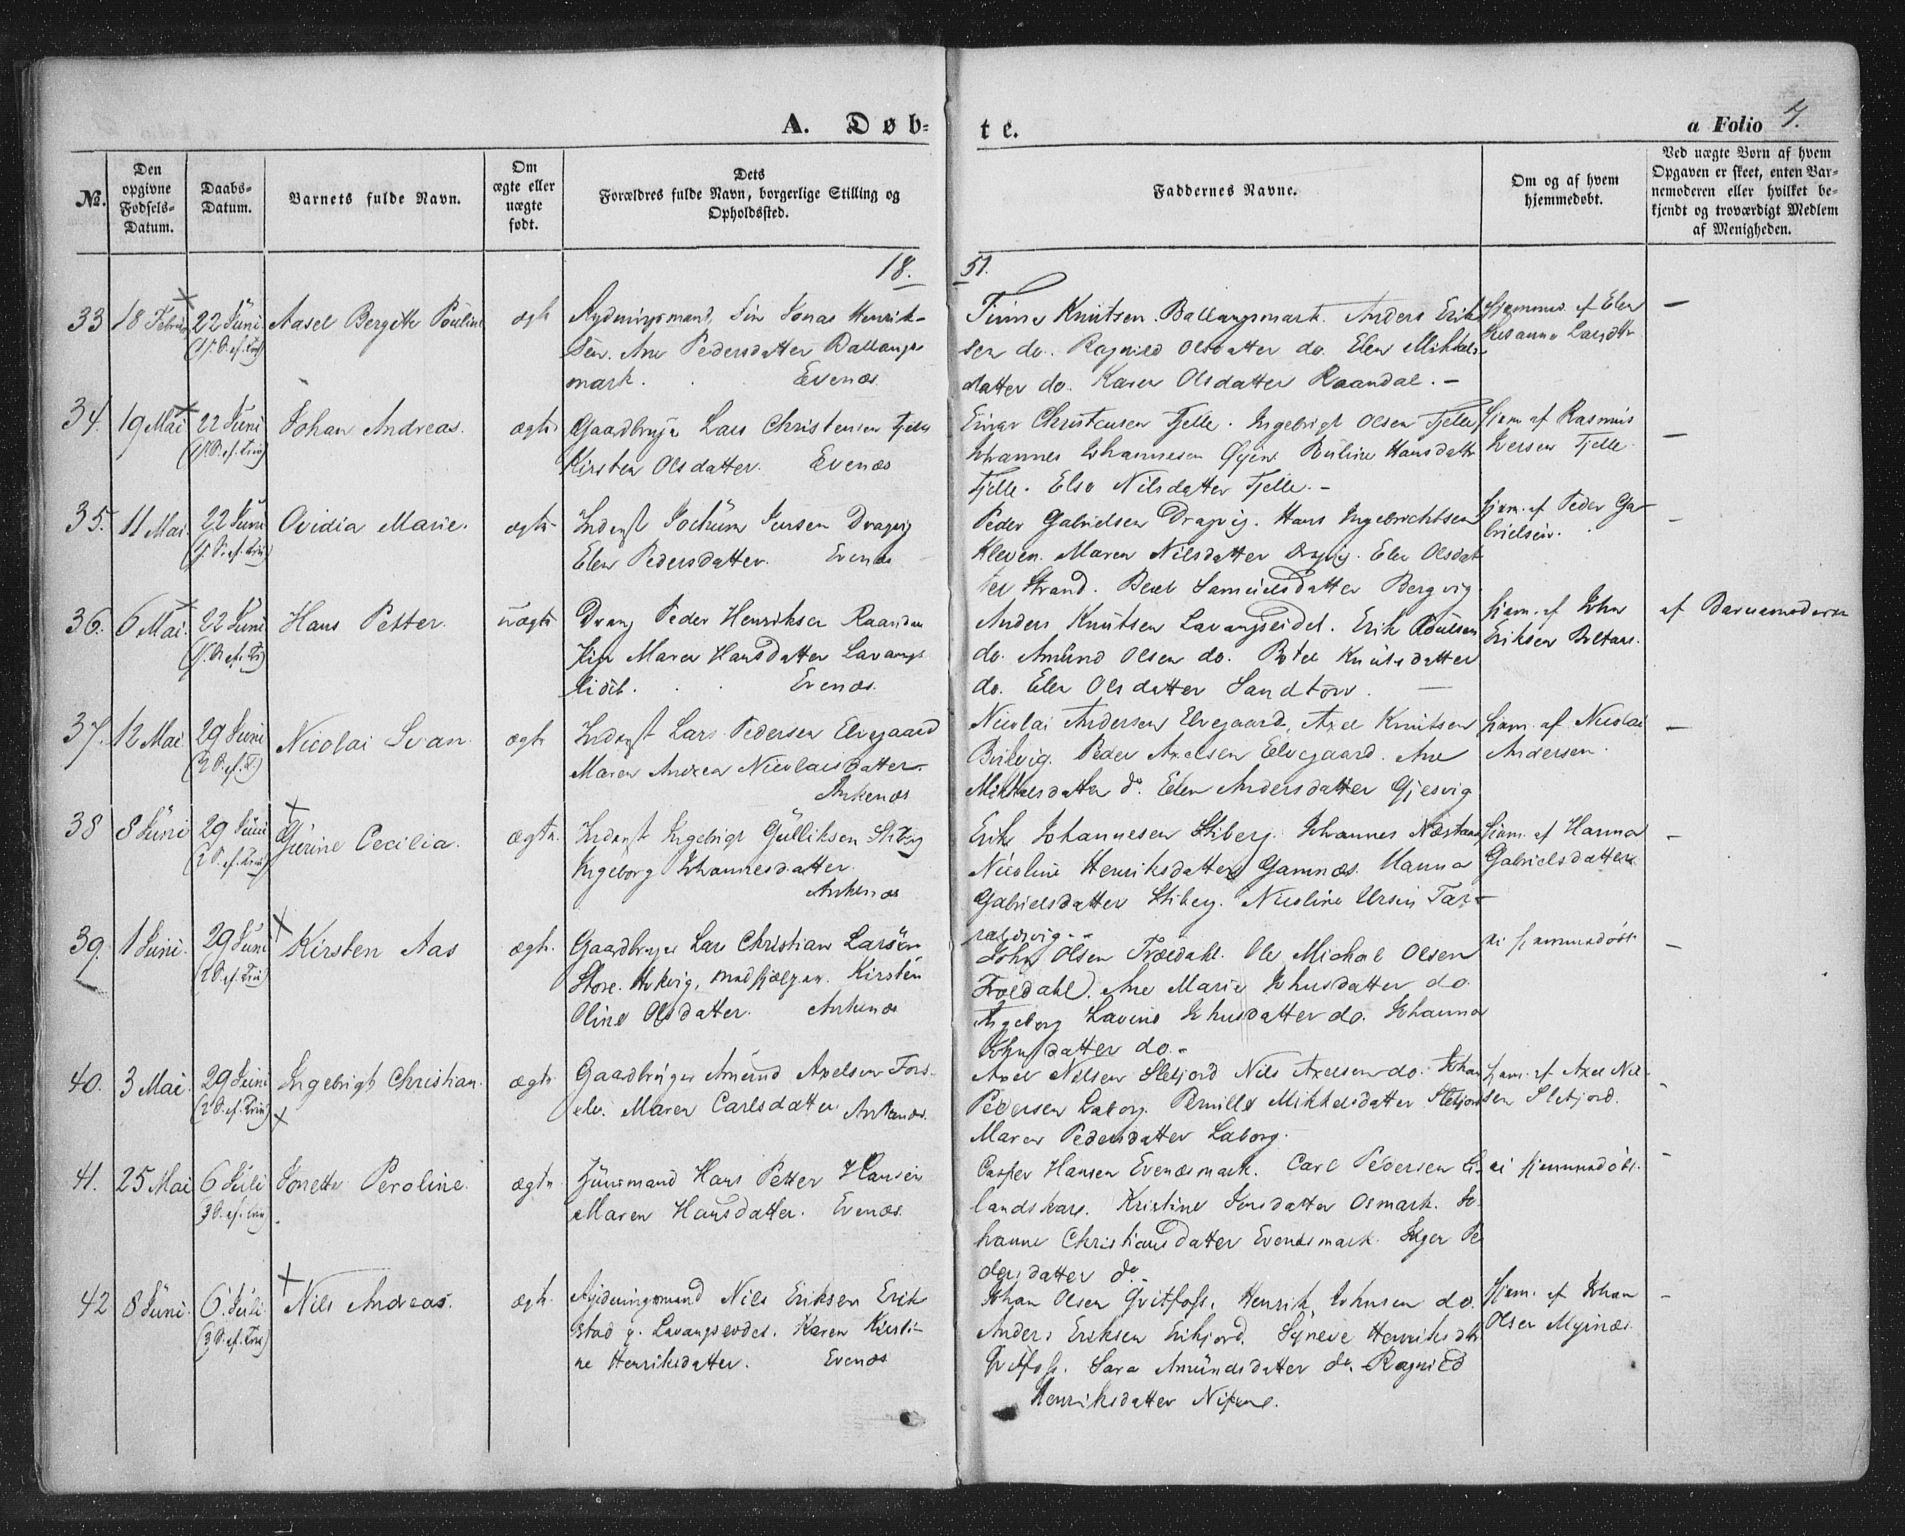 A. Døb-
te.
a Folio 4.
No.
Den opgivne Fødsels-Datum.
Daabs-Datum.
Barnets fulde Navn.
Om ægte eller uægte født.
Dets Forældres fulde Navn, borgerlige Stilling og Opholdssted.
Faddernes Navne.
Om og af hvem hjemmedøbt.
Ved uægte Børn af hvem Opgaven er skeet, enten Barnemoderen eller hvilket bekjendt og troværdigt Medlem af Menigheden.
18. 51.
33 18 Febru 22 Juni Aasel Bergitte Pauline ægte
(1 S. ef. Trin)
Rydningsmand, Fin Jonas Henrik-
sen. Ane Pedersdatter Ballangs
mark. Evenæs
Finne Knutsen Ballangsmark. Anders Erik
sen do. Ragnild Olsdatter do. Elen Mikkels-
datter do. Karen Olsdatter Raandal. -
Hjemmed. af Elen
Susanna Larsdtr
-
34. 19 Mai 22 Juni Johan Andreas. ægte
(1 S. ef. Trin)
Gaardbruger Lars Christensen Fjelle
Kirsten Olsdatter. Evenæs
Einar Christensen Fjelle. Ingebrigt Olsen Fjelle
Johannes Johannesen Øyen. Pauline Hansdattr
Fjelle. Else Nilsdatter Fjelle. -
Hjem af Rasmus
Iversen Fjelle.
-
35. 11 Mai. 22 Juni Ovidia Marie. ægte
(1 S. ef. Trin)
Inderst Jochum Jensen Dragvig
Elen Pedersdatter. Evenæs
Peder Gabrielsen Dragvig. Hans Ingebrichtsen
Kleven. Maren Nilsdatter Dragvig. Elen Olsdat
ter Strand. Beret Samuelsdatter Bergvig.
hjem. af Peder Ga-
brielsen.
-
36. 6 Mai. 22 Juni Hans Petter. uægte
(1 S. ef. Tr)
Dreng Peder Henriksen Raandal
Pige Maren Hansdatter Lavangs
eidet. Evenæs.
Anders Knutsen Lavangseidet. Erik Poulsen
do. Amund Olsen do. Botel Knutsdatter
do. Elen Olsdatter Sandtorv.
hjem. af John
Eriksen Boltaas.
af Barnemoderen
37. 12 Mai 29 Juni Nicolai Svan ægte
(2 S. ef. T)
Inderst Lars Pedersen Elvegaard
Maren Andrea Nicolaisdatter.
Ankenæs
Nicolai Andersen Elvegaard, Axel Knutsen
Peder Axelsen Elvegaard. Ane
Mikkelsdatter do. Elen Andersdatter Gjesvig
hjem. af Nicolai
Andersen.
-
38 8 Juni 29 Juni Gjurine Cecilia. ægte
(2 S. ef. Trin)
Inderst Ingebrigt Gulliksen Stiberg
Ingeborg Johannesdatter.
Ankenæs
Erik Johannesen Stiberg. Johannes
Nicoline Henriksdatter Gamnæs. Hanna
Gabrielsdatter Stiberg. Nicoline Ursin Tar-
raldsvig. -
hjem. af Hanna
Gabrielsdatter
-
39. 1 Juni. 29 Juni Kirsten Aas ægte
(2 S. ef. Trin)
Gaardbruger Lars Christian Larsen
Store. medhjelper. Kirsten
Oline Olsdatter. Ankenæs
John Olsen Trældahl. Ole Michal Olsen
Trældahl. Ane Marie Johnsdatter do.
Ingeborg Lavine Johnsdatter do. Johanna
Johnsdatter do. -
ei hjemmedøbt
-
40. 3 Mai. 29 Juni Ingebrigt Christian. ægte
(2 S. ef. Trin)
Gaardbruger Amund Axelsen Fors-
elv. Maren Carlsdatter Ankenæs.
Axel Nilsen Sletjord Nils Axelsen do. Johan
Pedersen Laberg. Pernille Mikkelsdatter Sletjord
Maren Pedersdatter Laberg.
hjem. af Axel Nil-
sen Sletjord.
-
41. 25 Mai 6 Juli Jonette Peroline ægte
3 S. ef. Trin
Huusmand Hans Petter Hansen
Maren Hansdatter. Evenæs.
Casper Hansen Evenæsmark. Carl Pedersen
Kristine Jensdatter Osmark. Jo-
hanne Christiansdatter Evenæsmark. Inger Pe
dersdatter do. -
ei hjemmedøbt.
-
42 8 Juni. 6 Juli Nils Andreas. ægte
(3 S. ef. Trin)
Rydningsmand Nils Eriksen Erik
stad p. Lavangseidet. Karen Kirsti-
ne Henriksdatter. Evenæs
Johan Olsen Qvitfoss. Henrik Johnsen do.
Anders Eriksen. Synnve Henriksdtr
Qvitfoss. Sara Amundsdatter do. Ragnild
Henriksdatter
Hjem. af Johan
Olsen Myrnæs.
-